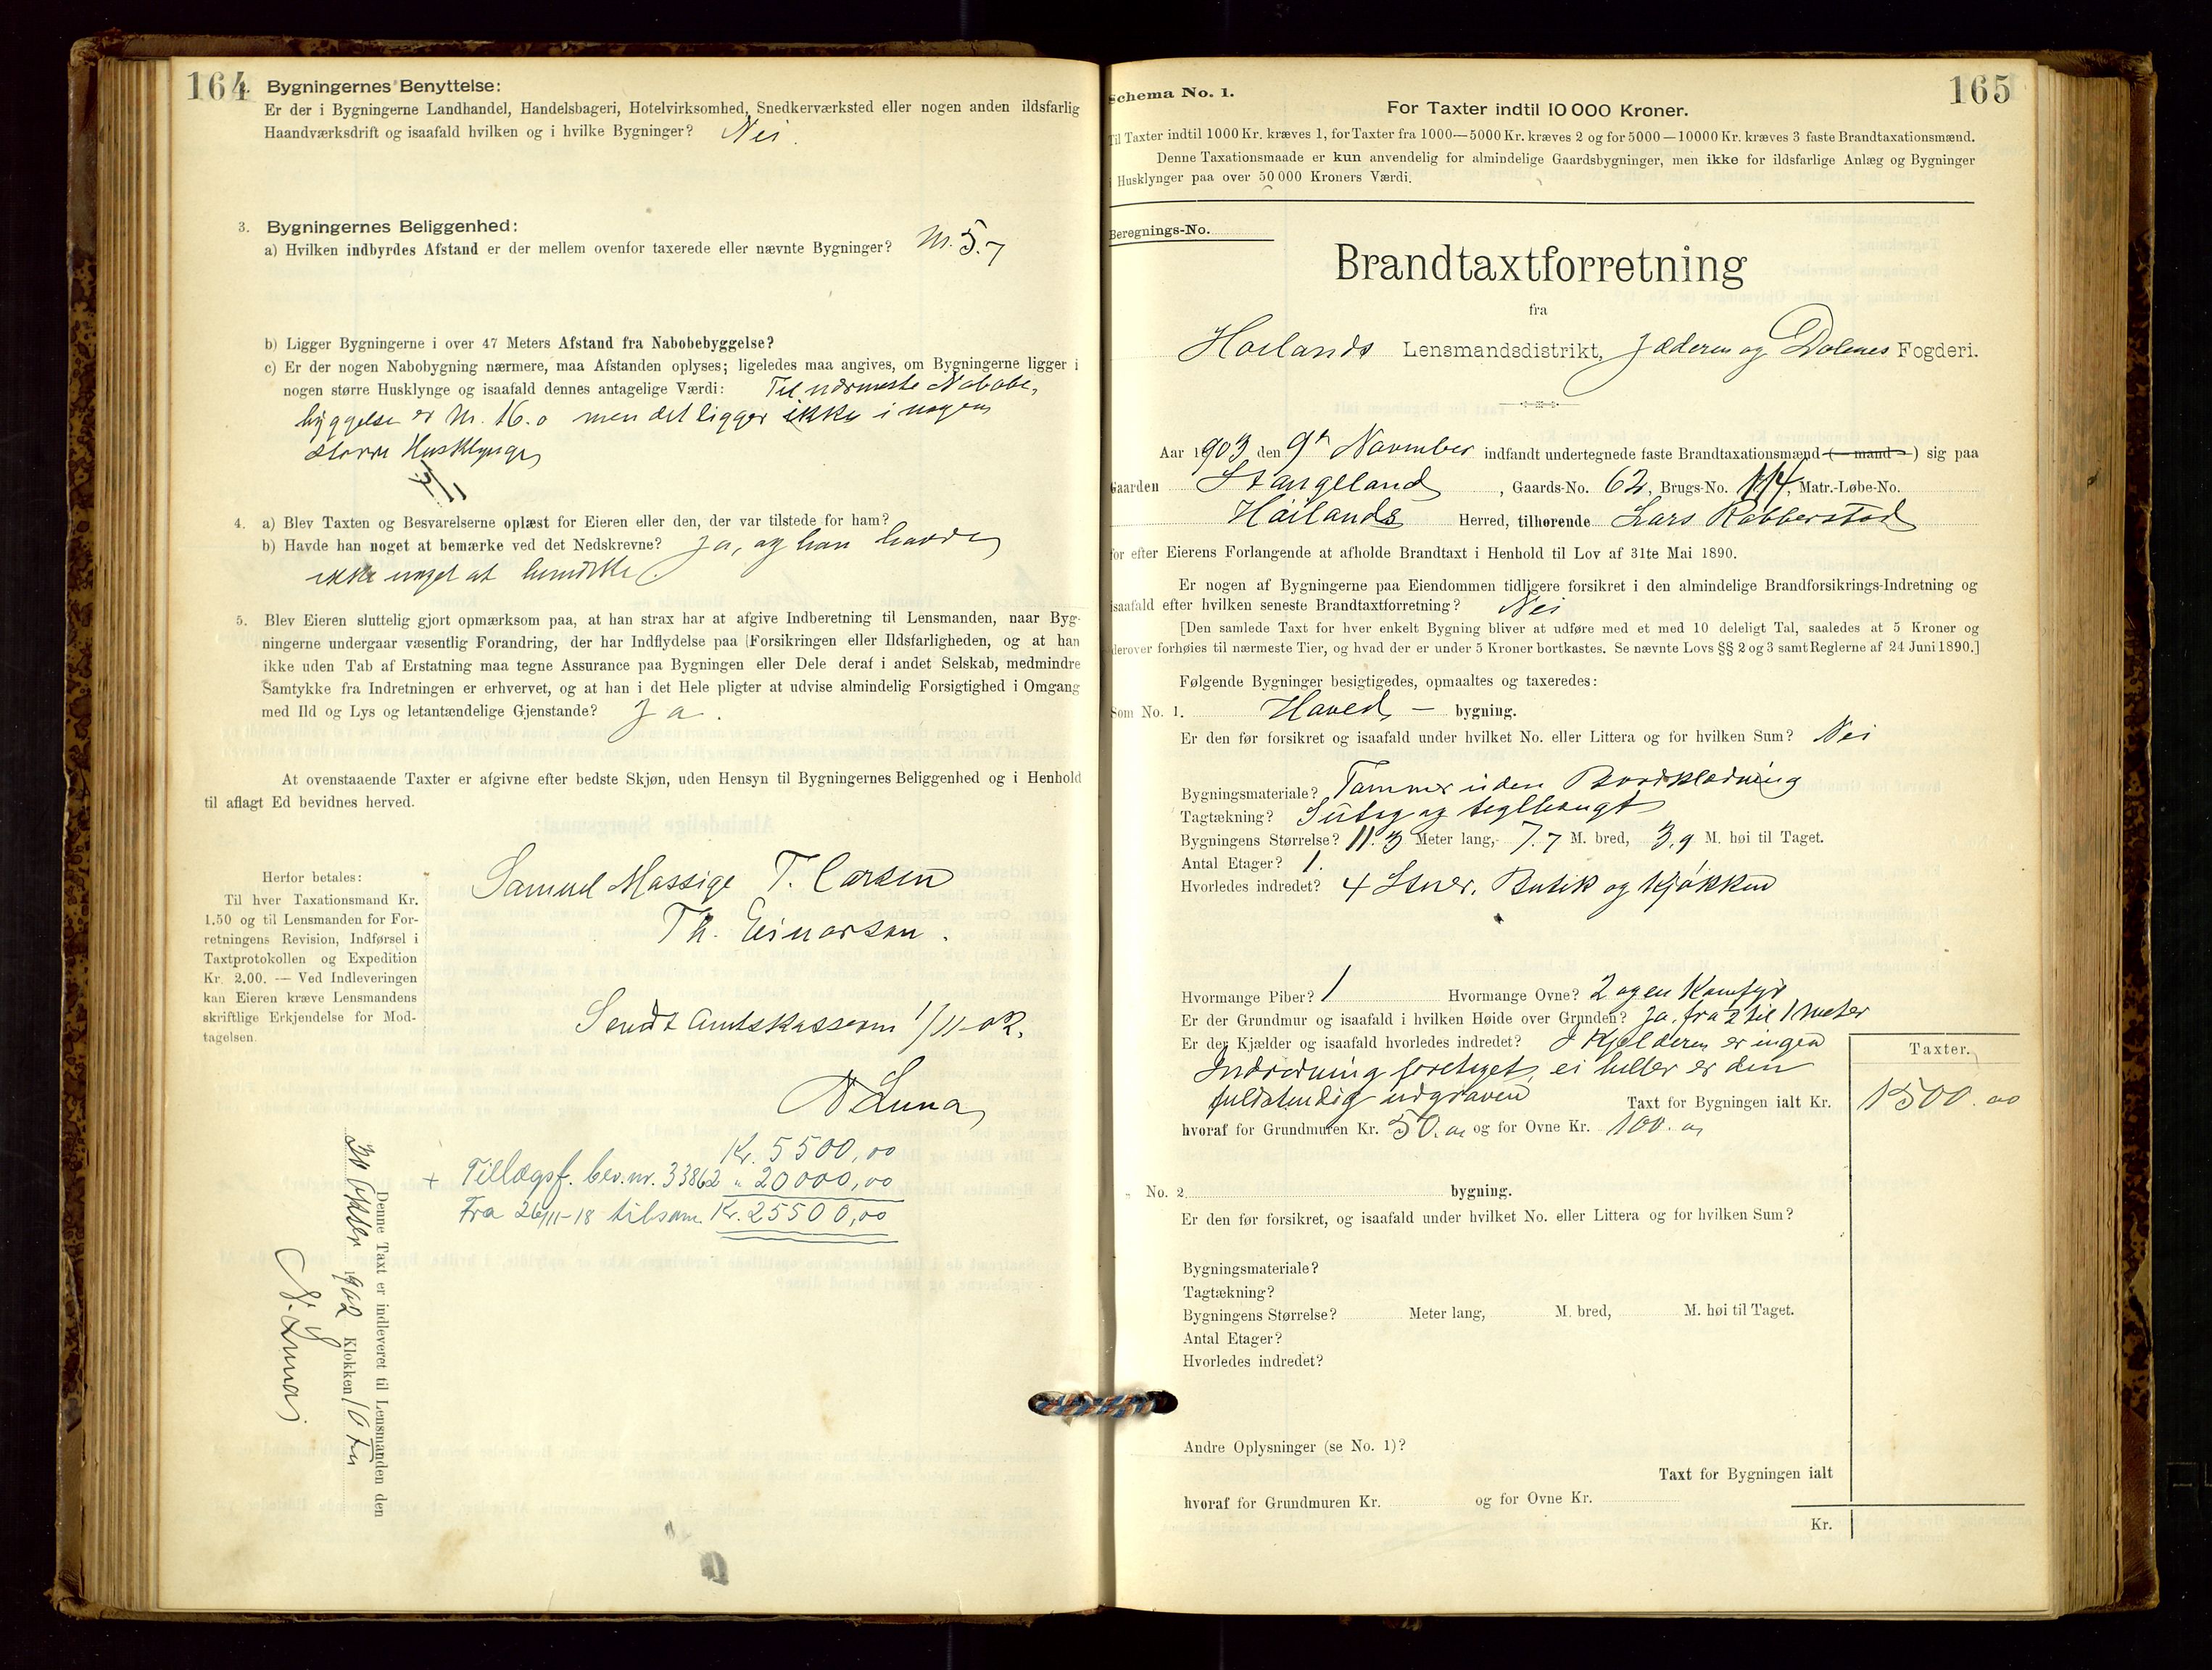 164
Bygningernes Benyttelse:
Er der i Bygningerne Landhandel, Handelsbageri, Hotelvirksomhed, Snedkerværksted eller nogen anden ildsfarlig
Haandværksdrift og isaafald hvilken og i hvilke Bygninger? Nei.
3. Bygningernes Beliggenhed:
a) Hvilken indbyrdes Afstand er der mellem ovenfor taxerede eller nævnte Bygninger? M. 5.7
b) Ligger Bygningerne i over 47 Meters Afstand fra Nabobebyggelse?
c) Er der nogen Nabobygning nærmere, maa Afstanden oplyses; ligeledes maa angives, om Bygningerne ligger i
nogen større Husklynge og isaafald dennes antagelige Værdi: Til nærmeste Nabobe,
byggelse er M. 16.0 men det ligger ikke i nogen
større Husklynge
4. a) Blev Taxten og Besvarelserne oplæst for Eieren eller den, der var tilstede for ham?
b) Havde han noget at bemærke ved det Nedskrevne? Ja, og han havde
ikke noget at bemerke.
5. Blev Eieren sluttelig gjort opmærksom paa, at han strax har at afgive Indberetning til Lensmanden, naar Byg-
ningerne undergaar væsentlig Forandring, der har Indflydelse paa Forsikringen eller Ildsfarligheden, og at han
ikke uden Tab af Erstatning maa tegne Assurance paa Bygningen eller Dele deraf i andet Selskab, medmindre
Samtykke fra Indretningen er erhvervet, og at han i det Hele pligter at udvise almindelig Forsigtighed i Omgang
med Ild og Lys og letantændelige Gjenstande? Ja.
At ovenstaaende Taxter er afgivne efter bedste Skjøn, uden Hensyn til Bygningernes Beliggenhed og i Henhold
til aflagt Ed bevidnes herved.
Samuel Massige T. Carsen
Th. Einarsen.
Herfor betales:
Til hver Taxationsmand Kr.
1.50 og til Lensmanden for For-
retningens Revision, Indførsel i
Taxtprotokollen og Expedition
Kr. 2.00. — Ved Indleveringen
kan Eieren kræve Lensmandens
skriftlige Erkjendelse for Mod-
tagelsen.
Sendt Amtskasseren 1/11-02.
N Luna
Kr. 5500,00
+ Tillægsf. bev.nr. 33862 " 20000,00
Fra 26/11-18 tilsam. Kr. 25500,00
Denne Taxt er indleveret til Lensmanden den
30 Oktbr 1902 Klokken 10 Fm
N. Luna
165
Schema No. 1.
For Taxter indtil 10 000 Kroner.
Til Taxter indtil 1000 Kr. kræves 1, for Taxter fra 1000—5000 Kr. kræves 2 og for 5000—10000 Kr. kræves 3 faste Brandtaxationsmænd.
Denne Taxationsmaade er kun anvendelig for almindelige Gaardsbygninger, men ikke for ildsfarlige Anlæg og Bygninger
i Husklynger paa over 50 000 Kroners Værdi.
Beregnings-No.
Brandtaxtforretning
fra
Høilands Lensmandsdistrikt, Jæderen og Dalenes Fogderi.
Aar 1903 den 9de November indfandt undertegnede faste Brandtaxationsmænd (—mand—) sig paa
Gaarden Stangeland, Gaards-No. 62, Brugs-No. 114, Matr.-Løbe-No.
Høilands Herred, tilhørende Lars Rabberstad
for efter Eierens Forlangende at afholde Brandtaxt i Henhold til Lov af 31te Mai 1890.
Er nogen af Bygningerne paa Eiendommen tidligere forsikret i den almindelige Brandforsikrings-Indretning og
isaafald efter hvilken seneste Brandtaxtforretning? Nei
[Den samlede Taxt for hver enkelt Bygning bliver at udføre med et med 10 deleligt Tal, saaledes at 5 Kroner og
derover forhøies til nærmeste Tier, og hvad der er under 5 Kroner bortkastes. Se nævnte Lovs §§ 2 og 3 samt Reglerne af 24 Juni 1890.]
Følgende Bygninger besigtigedes, opmaaltes og taxeredes:
Som No. 1. Hoved — bygning.
Er den før forsikret og isaafald under hvilket No. eller Littera og for hvilken Sum? Nei
Bygningsmateriale? Tømmer uden Bordklædning
Tagtækning? Sutag og teglhængt
Bygningens Størrelse? 11.3 Meter lang, 7.7 M. bred, 3,9 M. høi til Taget.
Antal Etager? 1.
Hvorledes indredet? 4 Stuer, Butik og Kjøkken
Hvormange Piber? 1 Hvormange Ovne? 2 og en Komfyr
Er der Grundmur og isaafald i hvilken Høide over Grunden? Ja, fra 2 til 1 meter
Er der Kjælder og isaafald hvorledes indredet? I Kjelderen er ingen
Indredning foretaget, ei heller er den
fuldstendig udgraven
Taxter.
Taxt for Bygningen ialt Kr. 1500.00
hvoraf for Grundmuren Kr. 50.00 og for Ovne Kr. 100.00
No. 2 bygning.
Er den før forsikret, og isaafald under hvilket No. eller Littera og for hvilken Sum?
Bygningsmateriale?
Tagtækning?
Bygningens Størrelse? Meter lang, M. bred, M. høi til Taget.
Antal Etager?
Hvorledes indredet?
Andre Oplysninger (se No. 1)?
Taxt for Bygningen ialt
hvoraf for Grundmuren Kr. og for Ovne Kr.
Kr.